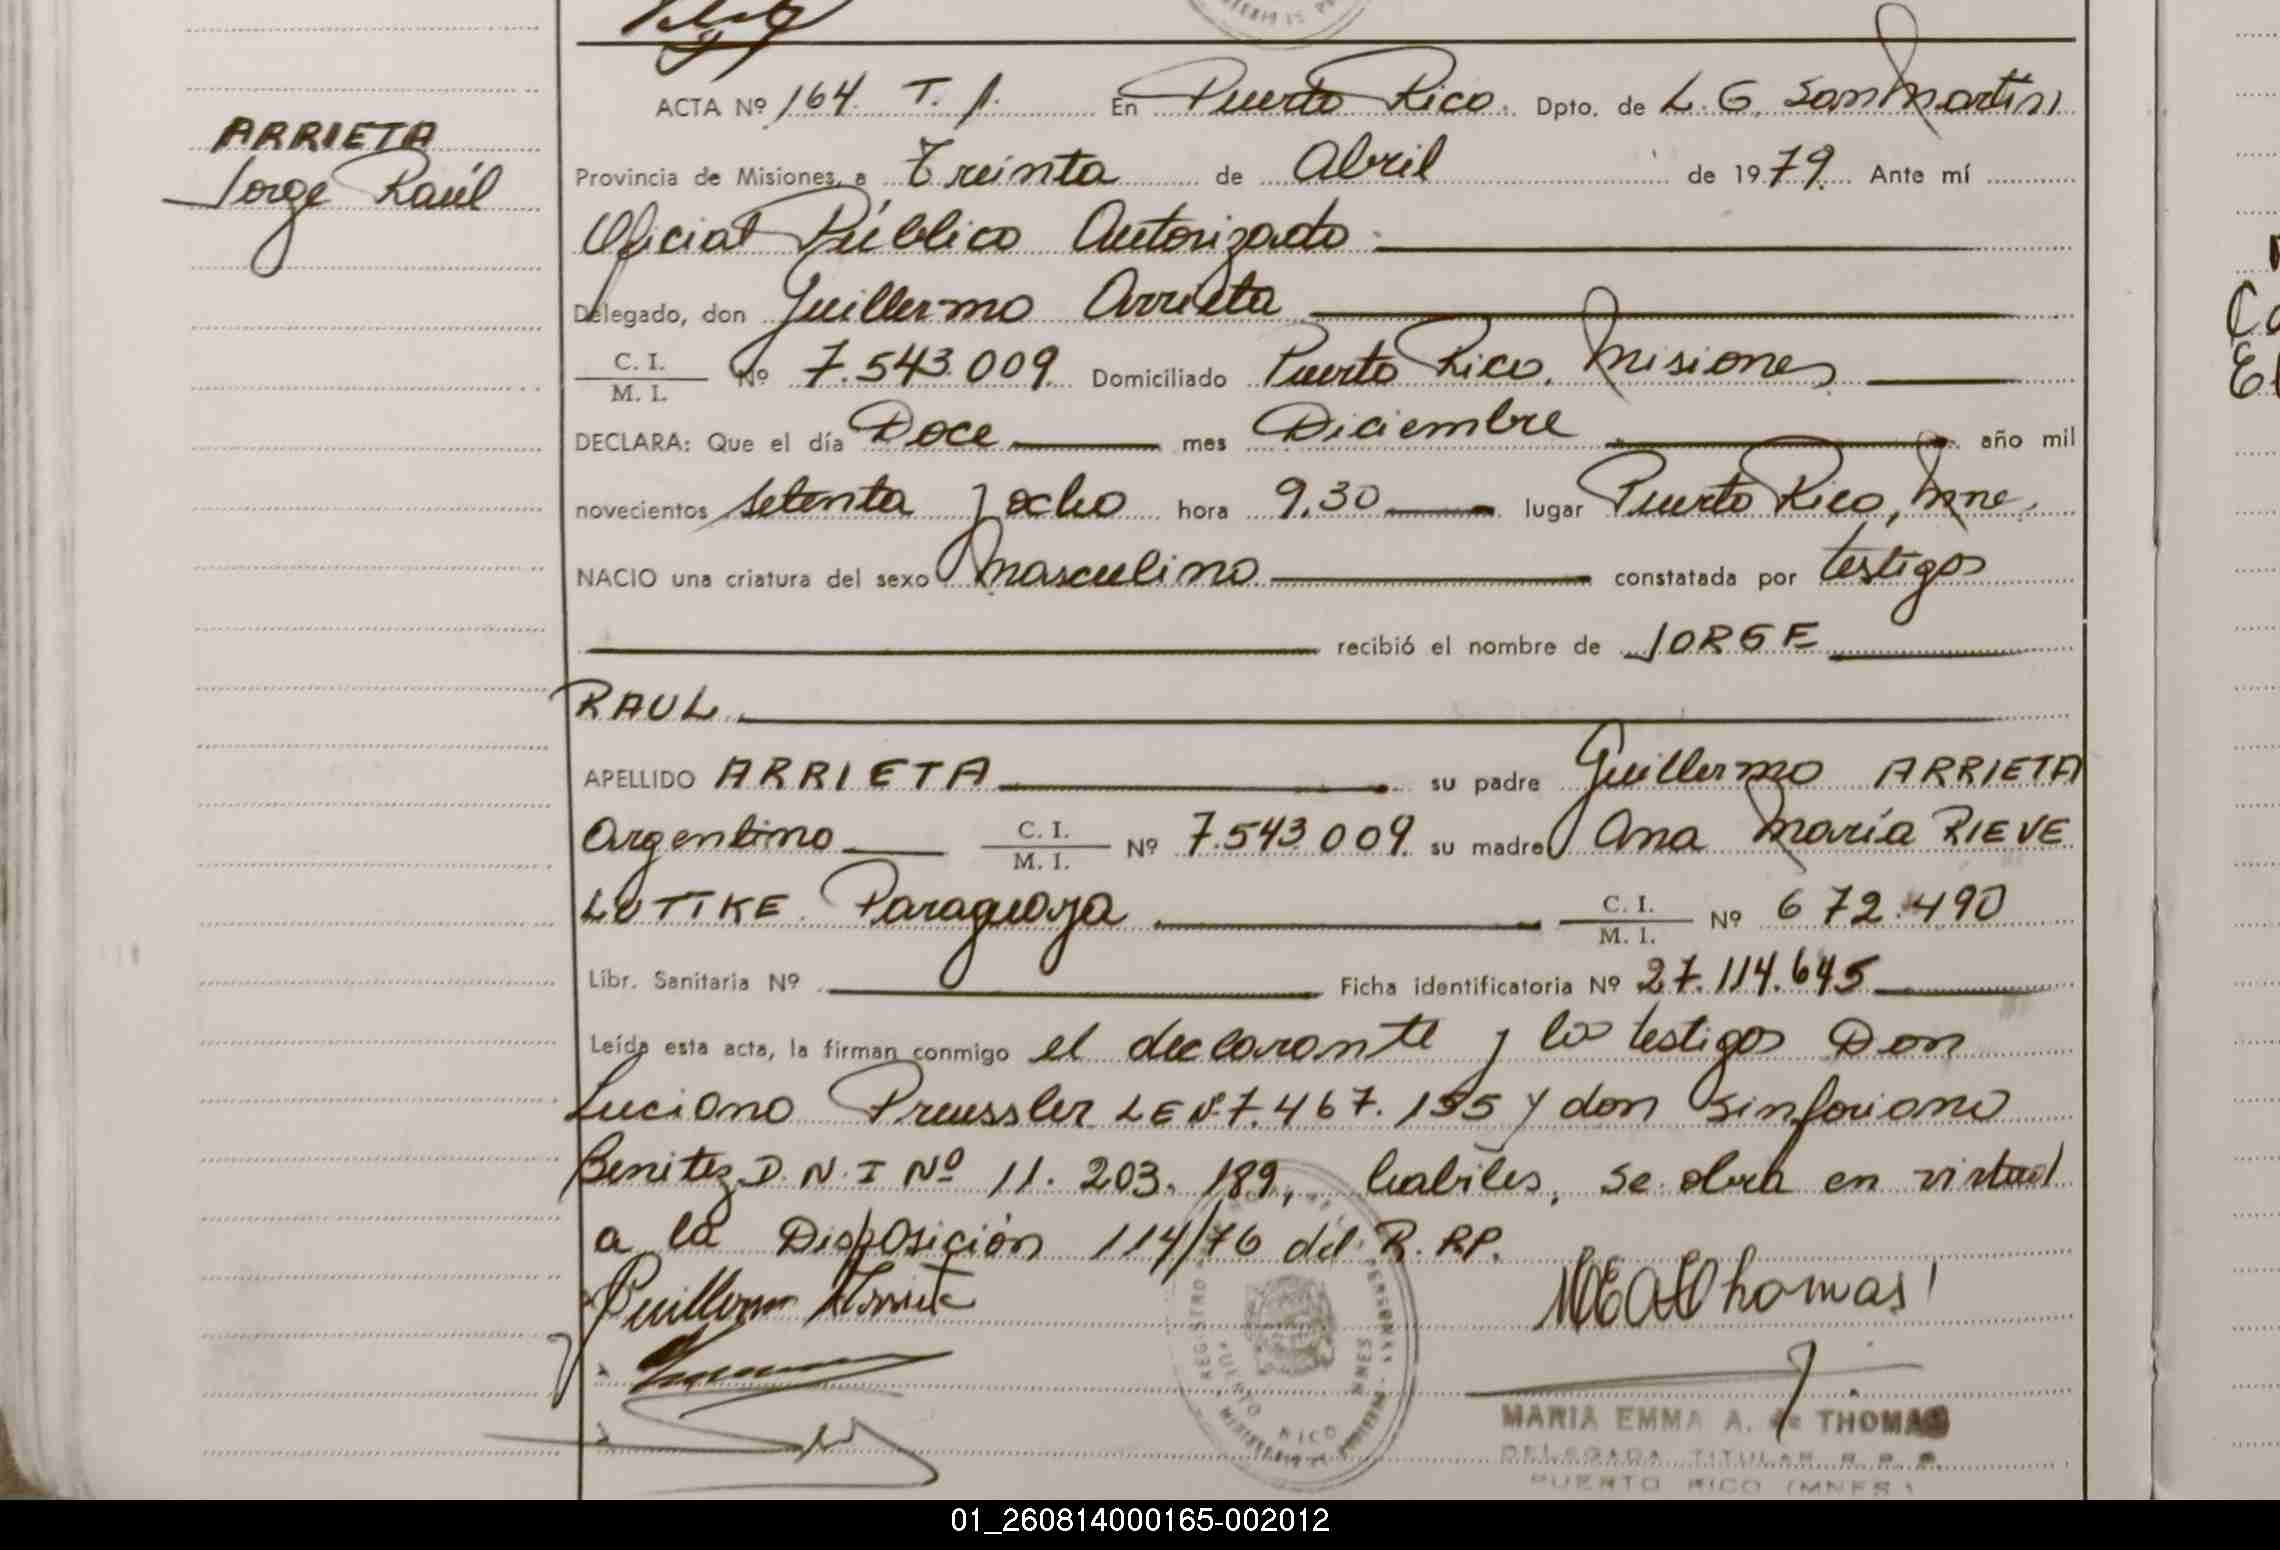 ARRIETA
Jorge Raúl
ACTA Nº 164. T. 1. En Puerto Rico. Dpto. de L. G. San Martin
Provincia de Misiones, a Treinta de Abril de 1979. Ante mí
Oficial Público Autorizado
Delegado, don Guillermo Arrieta
C. I. / M. I. Nº 7.543.009 Domiciliado Puerto Rico, Misiones
DECLARA: Que el día Doce mes Diciembre año mil
novecientos setenta y ocho hora 9,30 lugar Puerto Rico, Mnes.
NACIO una criatura del sexo masculino constatada por testigos
recibió el nombre de JORGE
RAUL
APELLIDO ARRIETA su padre Guillermo ARRIETA
Argentino C. I. / M. I. Nº 7.543.009 su madre Ana María RIEVE
LUTTKE Paraguaya C. I. / M. I. Nº 672.490
Libr. Sanitaria Nº Ficha identificatoria Nº 27.114.645
Leída esta acta, la firman conmigo el declarante y los testigos Don
Luciano Preussler LE Nº 7.467.155 y don Sinforiano
Benitez D.N.I Nº 11.203.189, habiles, se obra en virtud
a la Disposición 114/76 del R.RP.
Guillermo Arrieta
MEAThomas
REGISTRO PUERTO RICO MNES
MARIA EMMA A. de THOMAS
DELEGADA TITULAR R.R.P.
PUERTO RICO (MNES)
01_260814000165-002012